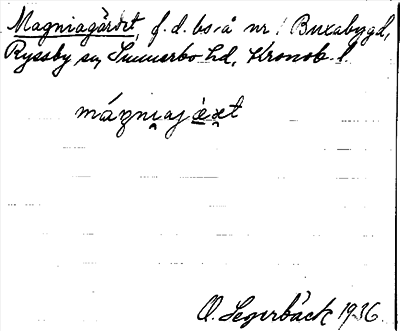 Magniagärdet, f. d. bs. å nr 1 Buxabygd,
Ryssby sn, Sunnerbo hd, Kronob. l.
mágniajæ̀ṛt
O. Segerbäck 1936.